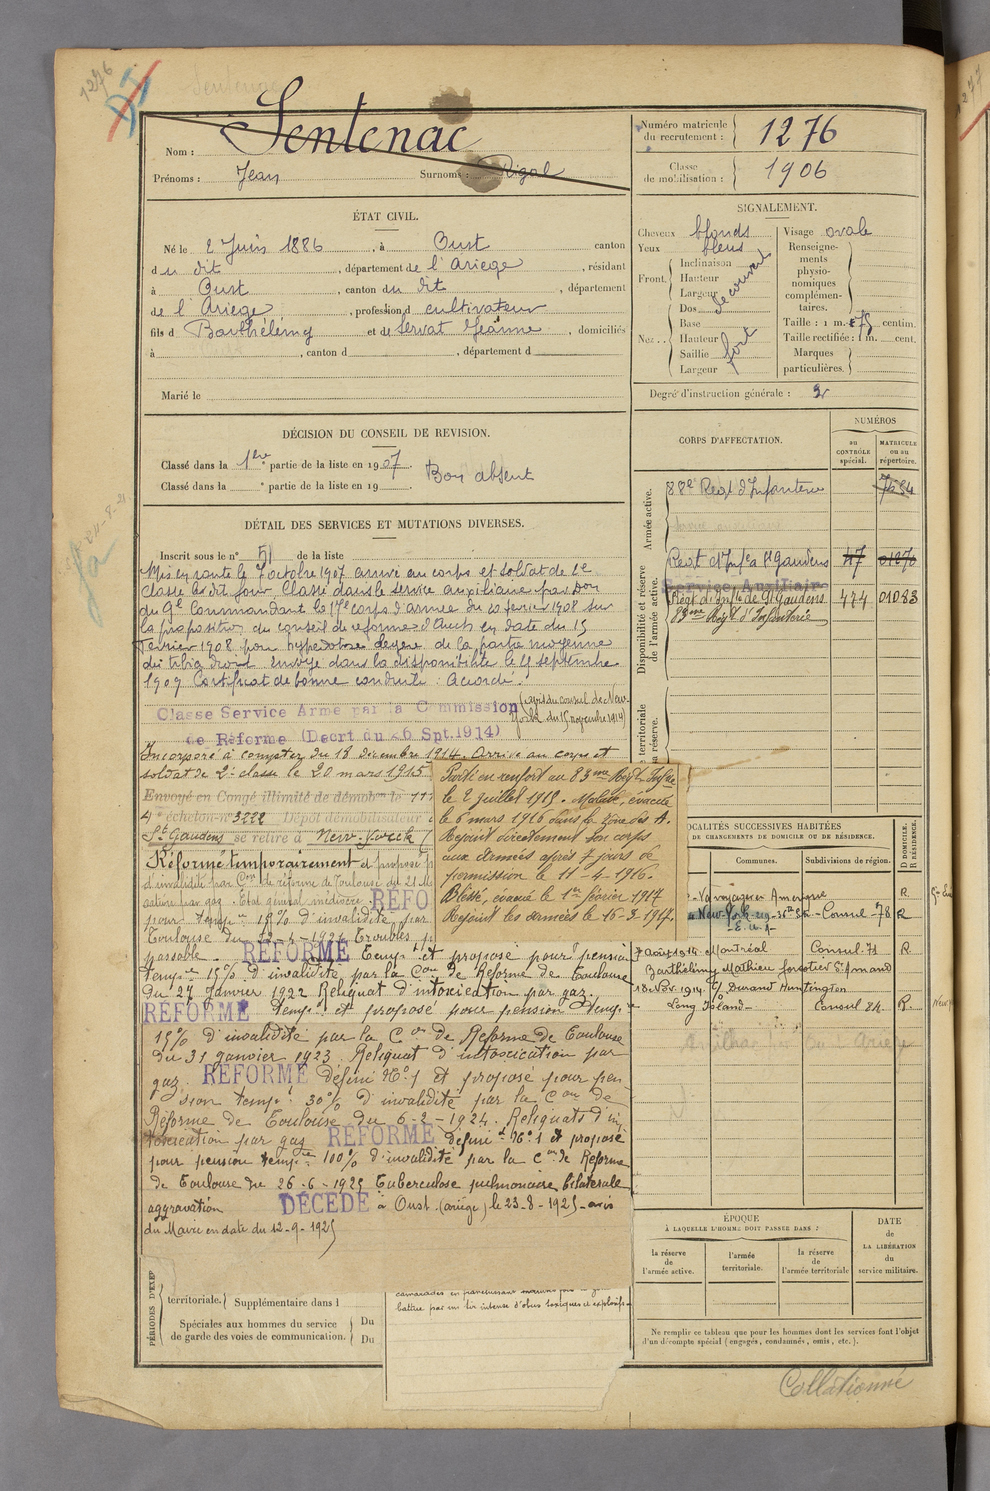 1276
Sentenac
Nom : Sentenac
Prénoms : Jean Surnoms : Rigal
Numéro matricule du recrutement : 1276
Classe de mobilisation : 1906
ÉTAT CIVIL.
Né le 2 Juin 1886, à Oust canton
du dit, département de l'Ariège, résidant
à Oust, canton du dit, département
de l'Ariège, profession d cultivateur
fils d Barthélemy et de Servat Jeanne, domiciliés
à , canton d , département d
Marié le
SIGNALEMENT.
Cheveux blonds
Yeux bleus
Front. Inclinaison Hauteur Largeur découvert
Nez.. Dos Base Hauteur Saillie Largeur fort
Visage ovale
Renseignements physionomiques complémentaires.
Taille : 1 m. 75 centim.
Taille rectifiée : 1 m. cent.
Marques particulières.
Degré d'instruction générale : 3
DÉCISION DU CONSEIL DE REVISION.
Classé dans la 1ère partie de la liste en 1907. Bon absent
Classé dans la ° partie de la liste en 19 .
DÉTAIL DES SERVICES ET MUTATIONS DIVERSES.
Inscrit sous le n° 51 de la liste
Mis en route le 7 octobre 1907 arrivé au corps et soldat de 2e
classe le dit jour. Classé dans le service auxiliaire par Don
du Gal Commandant le 17e corps d'armée du 20 février 1908 sur
la proposition du conseil de réforme d'Auch en date du 15
Février 1908 pour hyperostose légère de la partie moyenne
du tibia droit envoyé dans la disponibilité le 4 septembre
1909 Certificat de bonne conduite : Accordé.
Classé Service Armé par la Commission
de Réforme (Décret du 26 Spt. 1914)
(avis du consul de New-
York du 15 novembre 1914)
Incorporé à compter du 18 décembre 1914. Arrivé au corps et
soldat de 2e classe le 20 mars 1915
Envoyé en Congé illimité de démobon le 11
4e échelon n° 3222 Dépôt démobilisateur
St Gaudens se retire à New-Yorck (
Réformé temporairement et proposé p
d'invalidité par Con de réforme de Toulouse du 21 M
cation par gaz. Etat général médiocre RÉFO
pour tempre 15% d'invalidité par
Toulouse du 12-4-1921 Troubles p
passable. RÉFORMÉ Tempre et proposé pour pension
tempre 15% d'invalidité par la Con de Réforme de Toulouse
du 27 Janvier 1922 Reliquat d'intoxication par gaz.
RÉFORMÉ tempre et proposé pour pension temp
15% d'invalidité par la Con de Réforme de Toulouse
du 31 janvier 1923. Reliquat d'intoxication par
gaz. RÉFORMÉ défini N° 1 et proposé pour pen
sion tempre 30% d'invalidité par la Con de
Réforme de Toulouse du 6-2-1924. Reliquats d'in
toxication par gaz RÉFORMÉ défini N° 1 et proposé
pour pension tempre 100% d'invalidité par la Con de Réforme
de Toulouse du 26-6-1925 Tuberculose pulmonaire bilatérale
aggravation DÉCÉDÉ à Oust (ariège) le 23-8-1925 - avis
du Maire en date du 12-9-1925
Parti en renfort au 83me Régt Infrie
le 2 juillet 1915. Malade, évacué
le 6 mars 1916 dans la zone des A.
Rejoint directement son corps
aux Armées après 7 jours de
permission le 11-4-1916.
Blessé, évacué le 1er février 1917
Rejoint les armées le 16-3-1917.
CORPS D'AFFECTATION.
NUMÉROS
au CONTRÔLE spécial.
MATRICULE ou au répertoire.
Armée active.
88e Régt d'Infanterie 7684
Disponibilité et réserve de l'armée active.
Regt d'Infie St Gaudens 47 01370
Service Auxiliaire
Régt d'Infie de St Gaudens 474 01083
83me Régt d'Infanterie
e territoriale
sa réserve.
OCALITÉS SUCCESSIVES HABITÉES
DE CHANGEMENTS DE DOMICILE OU DE RÉSIDENCE.
Communes.
Subdivisions de région.
D DOMICILE.
R RÉSIDENCE.
Voyage en Amérique R.
New-York 219-36th St - Consul-78 R
- E.U.A -
7 Août 1914 Montréal Consul 71 R.
Barthélemy Mathieu St Amand
18 Nov. 1914 C/ Durand Huntington
Long Island - Consul 84. R.
ÉPOQUE
À LAQUELLE L'HOMME DOIT PASSER DANS :
la réserve de l'armée active.
l'armée territoriale.
la réserve de l'armée territoriale
DATE de LA LIBÉRATION du service militaire.
Ne remplir ce tableau que pour les hommes dont les services font l'objet
d'un décompte spécial (engagés, condamnés, omis, etc.).
PÉRIODES D'EXER
territoriale. Supplémentaire dans l
Spéciales aux hommes du service Du
de garde des voies de communication. Du
battue par un tir intense d'obus toxiques et explosifs
Collationné